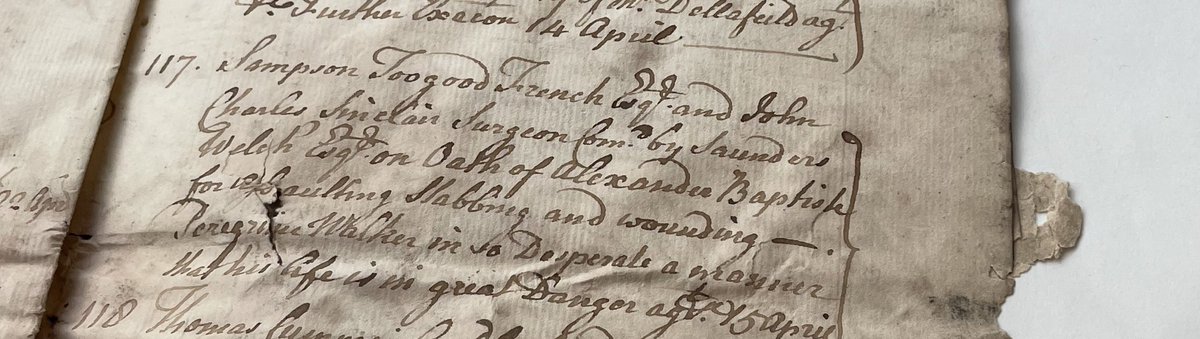 Further Exacon of Mr. Dellafeild agt.
14 April
117. Sampson Toogood French Esqr. and John
Charles Sinclair Surgeon Com'd. by Saunders
Welch Esqr. on Oath of Alexander Baptiste
for assaulting Stabbing and wounding —.
Peregrine Walker in so Desperate a manner
that his life is in great Danger agt. 15 April
92. Apr
118 Thomas